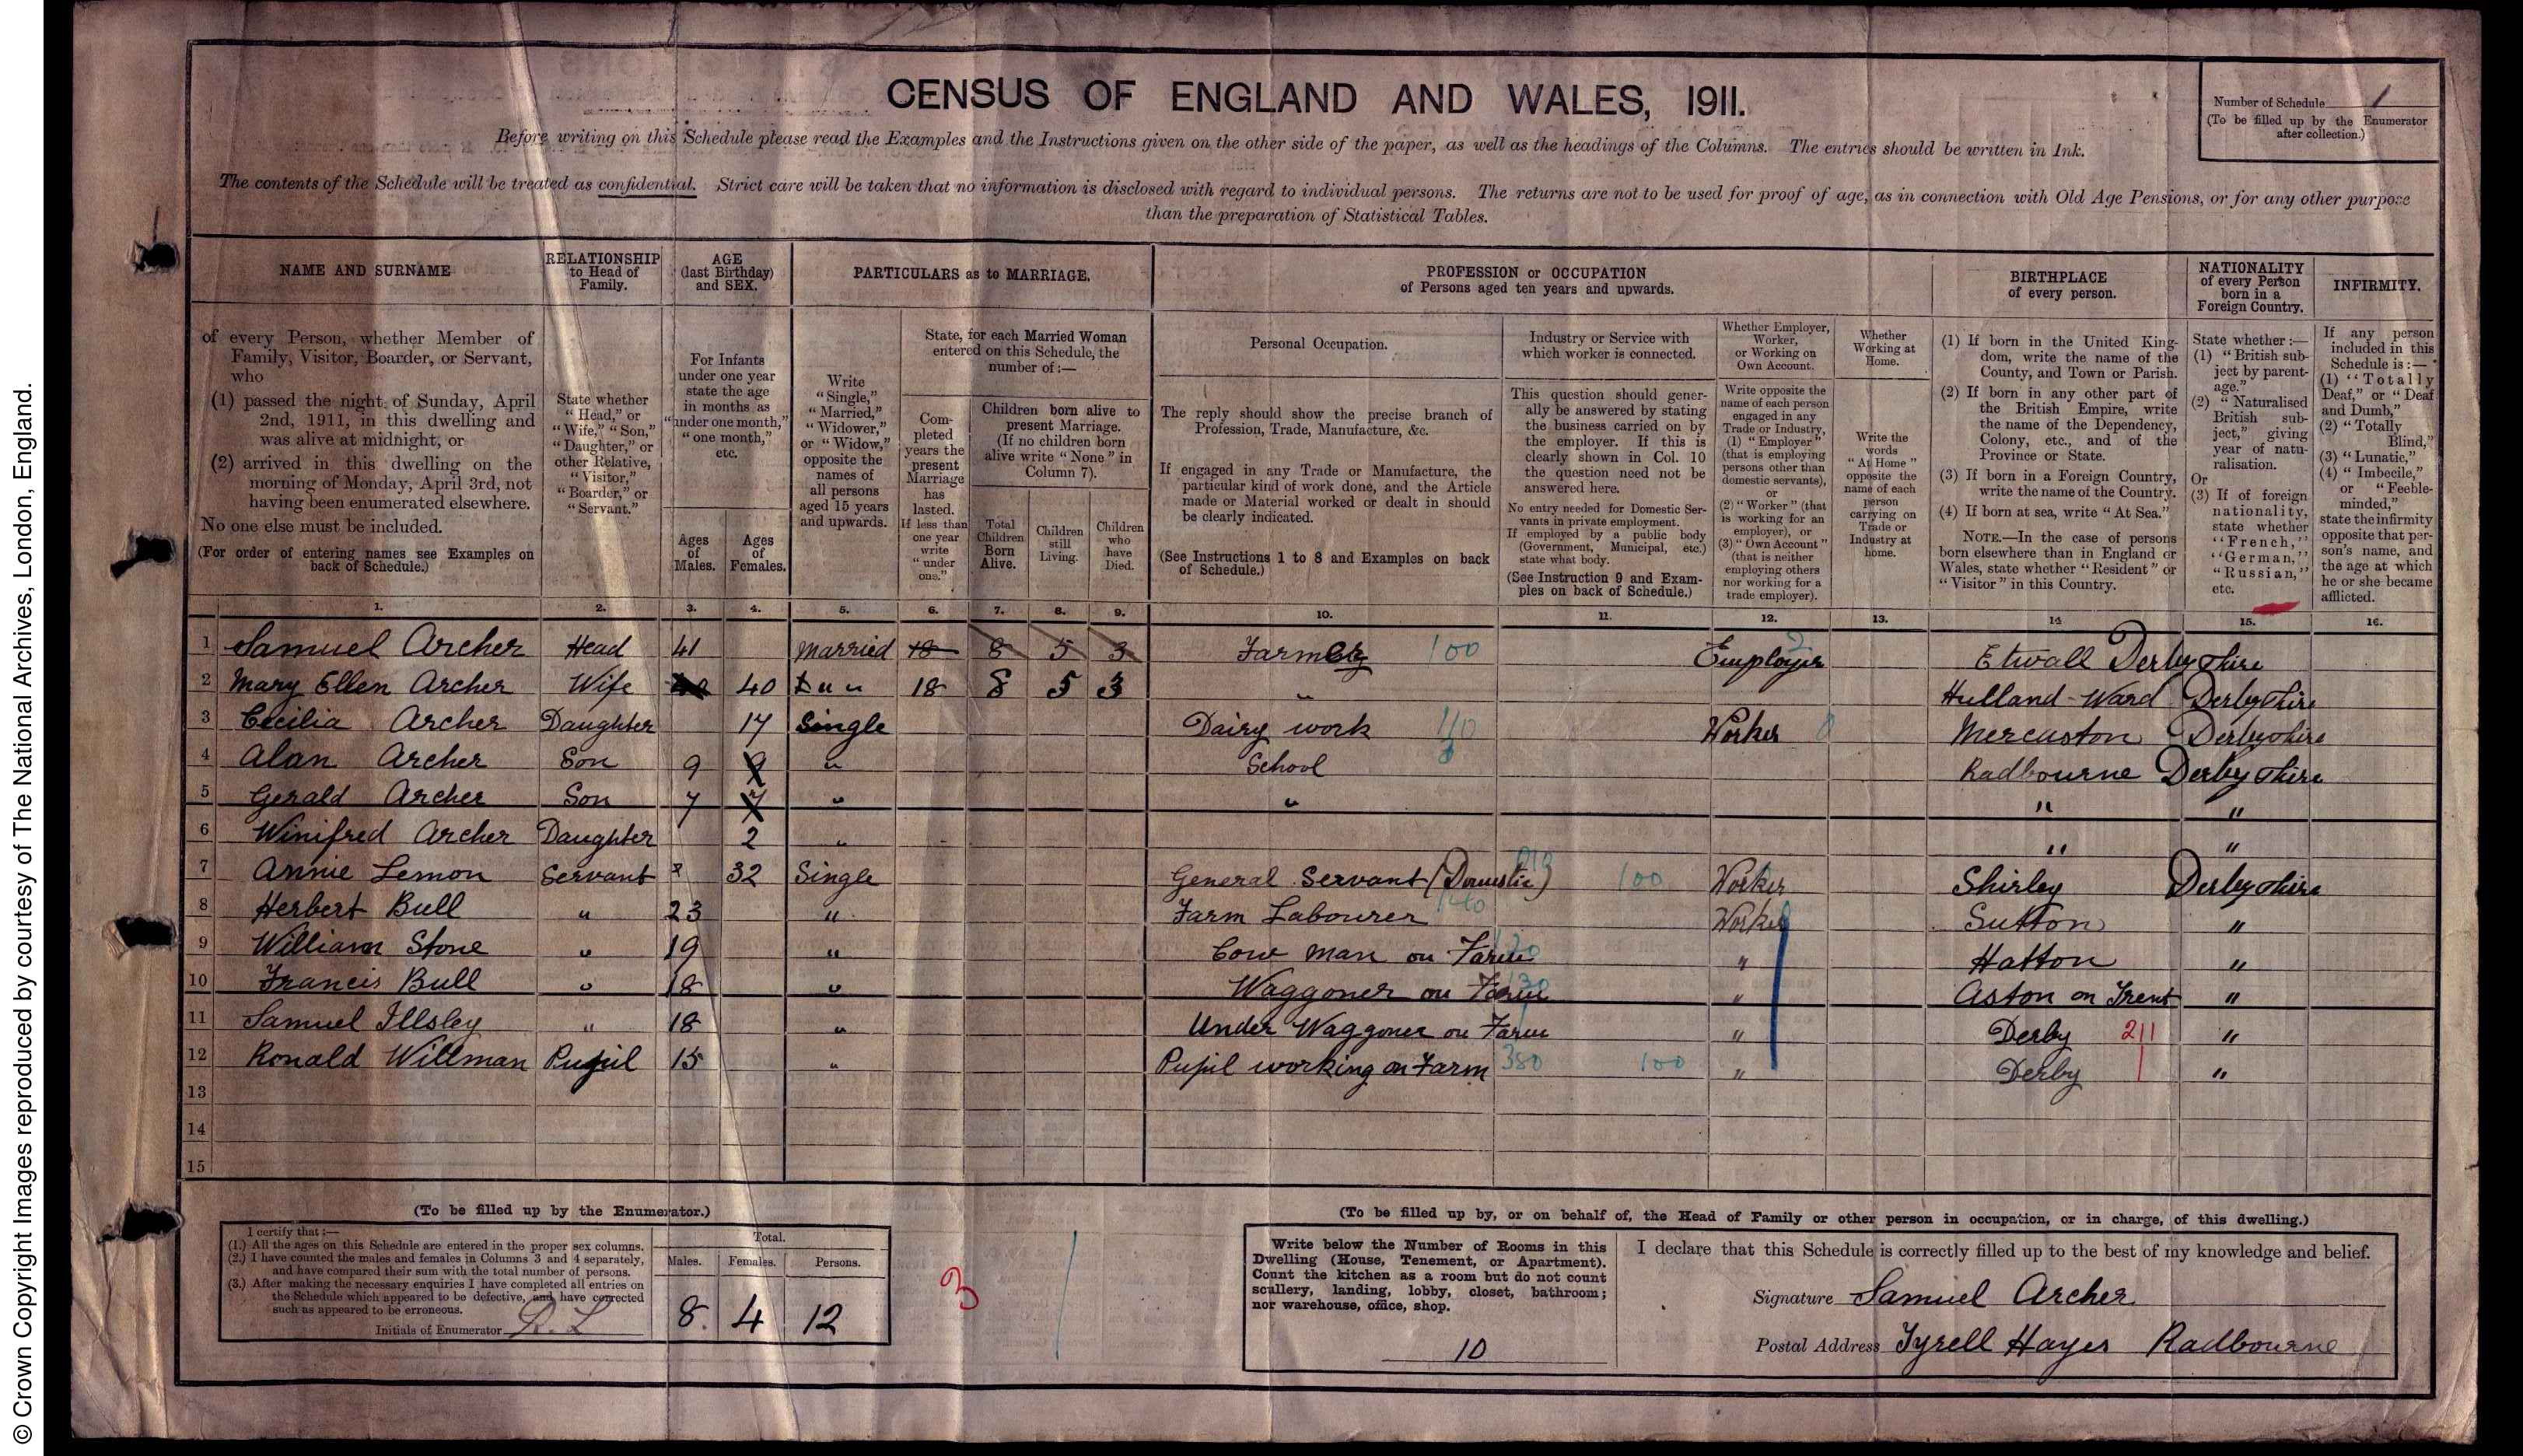 © Crown Copyright Images reproduced by courtesy of The National Archives, London, England.
CENSUS OF ENGLAND AND WALES, 1911.
Number of Schedule 1
(To be filled up by the Enumerator after collection.)
Before writing on this Schedule please read the Examples and the Instructions given on the other side of the paper, as well as the headings of the Columns. The entries should be written in Ink.
The contents of the Schedule will be treated as confidential. Strict care will be taken that no information is disclosed with regard to individual persons. The returns are not to be used for proof of age, as in connection with Old Age Pensions, or for any other purpose
than the preparation of Statistical Tables.
NAME AND SURNAME
of every Person, whether Member of
Family, Visitor, Boarder, or Servant,
who
(1) passed the night of Sunday, April
2nd, 1911, in this dwelling and
was alive at midnight, or
(2) arrived in this dwelling on the
morning of Monday, April 3rd, not
having been enumerated elsewhere.
No one else must be included.
(For order of entering names see Examples on
back of Schedule.)
RELATIONSHIP
to Head of
Family.
State whether
"Head," or
"Wife," "Son,"
"Daughter," or
other Relative,
"Visitor,"
"Boarder," or
"Servant."
AGE
(last Birthday)
and SEX.
For Infants
under one year
state the age
in months as
"under one month,"
"one month,"
etc.
Ages
of
Males.
Ages
of
Females.
PARTICULARS as to MARRIAGE.
Write
"Single,"
"Married,"
"Widower,"
or "Widow,"
opposite the
names of
all persons
aged 15 years
and upwards.
State, for each Married Woman
entered on this Schedule, the
number of:—
Com-
pleted
years the
present
Marriage
has
lasted.
If less than
one year
write
"under
one."
Children born alive to
present Marriage.
(If no children born
alive write "None" in
Column 7).
Total
Children
Born
Alive.
Children
still
Living.
Children
who
have
Died.
PROFESSION or OCCUPATION
of Persons aged ten years and upwards.
Personal Occupation.
The reply should show the precise branch of
Profession, Trade, Manufacture, &c.
If engaged in any Trade or Manufacture, the
particular kind of work done, and the Article
made or Material worked or dealt in should
be clearly indicated.
(See Instructions 1 to 8 and Examples on back
of Schedule.)
Industry or Service with
which worker is connected.
This question should gener-
ally be answered by stating
the business carried on by
the employer. If this is
clearly shown in Col. 10
the question need not be
answered here.
No entry needed for Domestic Ser-
vants in private employment.
If employed by a public body
(Government, Municipal, etc.)
state what body.
(See Instruction 9 and Exam-
ples on back of Schedule.)
Whether Employer,
Worker,
or Working on
Own Account.
Write opposite the
name of each person
engaged in any
Trade or Industry,
(1) "Employer"
(that is employing
persons other than
domestic servants),
or
(2) "Worker" (that
is working for an
employer), or
(3) "Own Account"
(that is neither
employing others
nor working for a
trade employer).
Whether
Working at
Home.
Write the
words
"At Home"
opposite the
name of each
person
carrying on
Trade or
Industry at
home.
BIRTHPLACE
of every person.
(1) If born in the United King-
dom, write the name of the
County, and Town or Parish.
(2) If born in any other part of
the British Empire, write
the name of the Dependency,
Colony, etc., and of the
Province or State.
(3) If born in a Foreign Country,
write the name of the Country.
(4) If born at sea, write "At Sea."
NOTE.—In the case of persons
born elsewhere than in England or
Wales, state whether "Resident" or
"Visitor" in this Country.
NATIONALITY
of every Person
born in a
Foreign Country.
State whether:—
(1) "British sub-
ject by parent-
age."
(2) "Naturalised
British sub-
ject," giving
year of natu-
ralisation.
Or
(3) If of foreign
nationality,
state whether
"French,"
"German,"
"Russian,"
etc.
INFIRMITY.
If any person
included in this
Schedule is:—
(1) "Totally
Deaf," or "Deaf
and Dumb,"
(2) "Totally
Blind,"
(3) "Lunatic,"
(4) "Imbecile,"
or "Feeble-
minded,"
state the infirmity
opposite that per-
son's name, and
the age at which
he or she became
afflicted.
1. 2. 3. 4. 5. 6. 7. 8. 9. 10. 11. 12. 13. 14 15. 16.
1 Samuel Archer Head 41 Married 18 8 5 3 Farmer 100 Employer 2 Etwall Derbyshire
2 Mary Ellen Archer Wife 40 " " 18 8 5 3 " Hulland-Ward Derbyshire
3 Cecilia Archer Daughter 17 Single Dairy work 110 Worker 0 Mercaston Derbyshire
4 Alan Archer Son 9 9 " School Radbourne Derbyshire
5 Gerald Archer Son 7 7 " " " "
6 Winifred Archer Daughter 2 " " "
7 Annie Lemon Servant 32 Single General Servant (Domestic) 100 Worker Shirley Derbyshire
8 Herbert Bull " 23 " Farm Labourer 140 Worker Sutton "
9 William Stone " 19 " Cow Man on Farm 120 " Hatton "
10 Francis Bull " 18 " Waggoner on Farm 130 " Aston on Trent "
11 Samuel Illsley " 18 " Under Waggoner on Farm " Derby 211 "
12 Ronald Willman Pupil 15 " Pupil working on Farm 380 100 " Derby "
13
14
15
(To be filled up by the Enumerator.)
I certify that:—
(1.) All the ages on this Schedule are entered in the proper sex columns.
(2.) I have counted the males and females in Columns 3 and 4 separately,
and have compared their sum with the total number of persons.
(3.) After making the necessary enquiries I have completed all entries on
the Schedule which appeared to be defective, and have corrected
such as appeared to be erroneous.
Initials of Enumerator
Total.
Males. Females. Persons.
8. 4 12
3
(To be filled up by, or on behalf of, the Head of Family or other person in occupation, or in charge, of this dwelling.)
Write below the Number of Rooms in this
Dwelling (House, Tenement, or Apartment).
Count the kitchen as a room but do not count
scullery, landing, lobby, closet, bathroom;
nor warehouse, office, shop.
10
I declare that this Schedule is correctly filled up to the best of my knowledge and belief.
Signature Samuel Archer
Postal Address Tyrell Hayes Radbourne